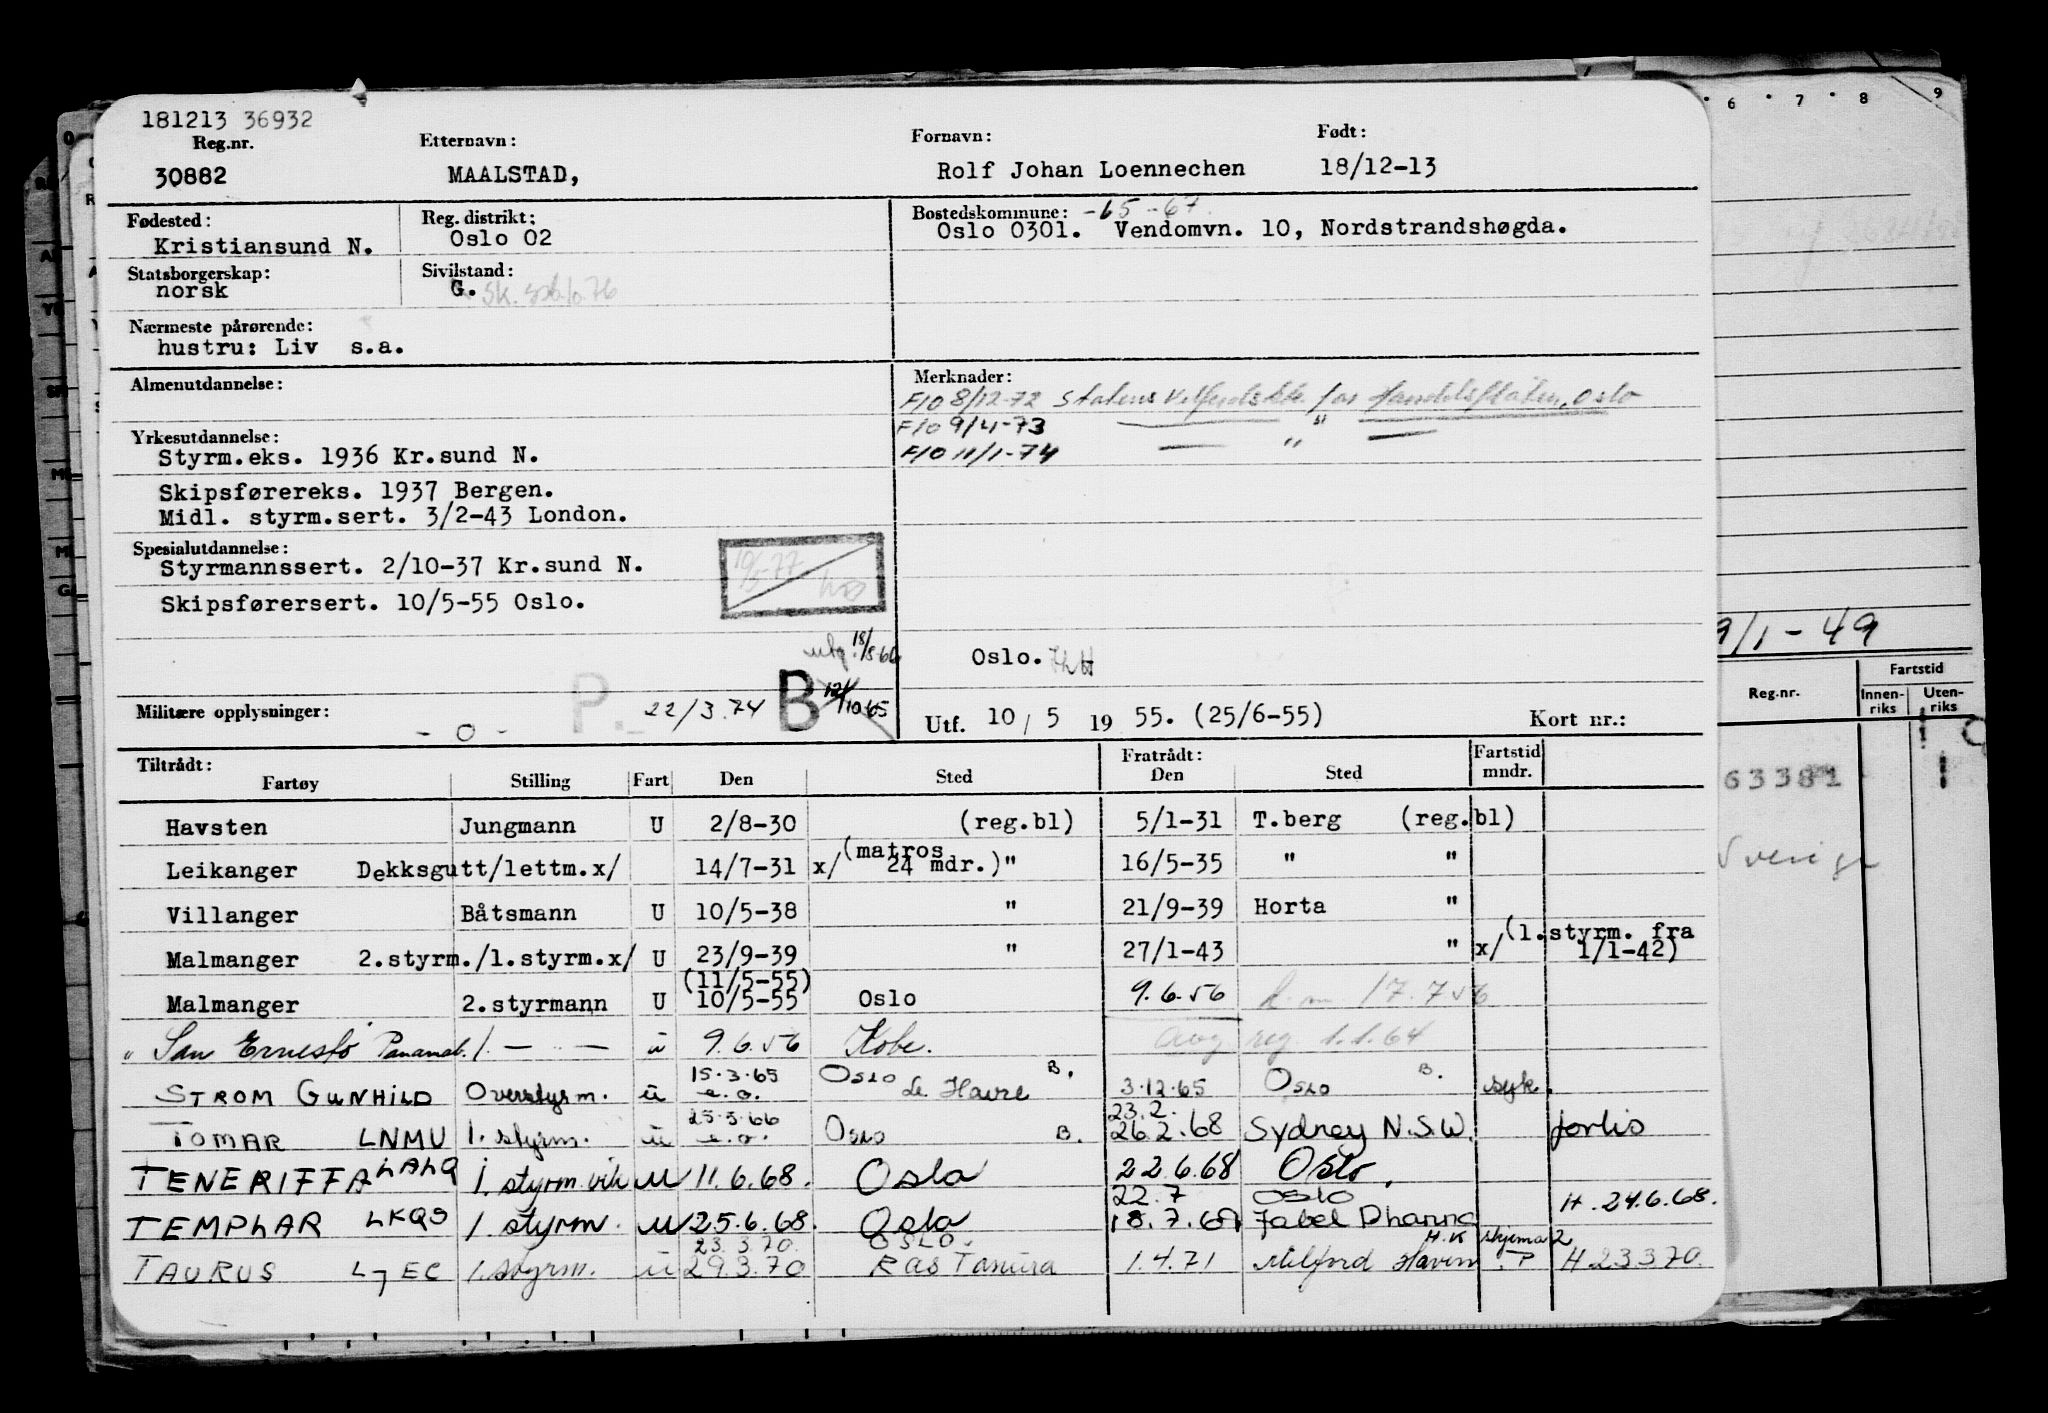 181213 36932
Reg.nr. Etternavn: Fornavn: Født:
30882 MAALSTAD, Rolf Johan Loennechen 18/12-13
Fødested: Reg. distrikt: Bostedskommune: -65-67.
Kristiansund N. Oslo 02 Oslo 0301. Vendomvn. 10, Nordstrandshøgda.
Statsborgerskap: Sivilstand:
norsk G. sk.
Nærmeste pårørende:
hustru: Liv s.a.
Almenutdannelse: Merknader:
F/O 8/12-72 Statens Handelsflåten, Oslo
F/O 9/4-73 — " —
Yrkesutdannelse:
Styrm.eks. 1936 Kr.sund N. F/O 11/1-74 — "
Skipsførereks. 1937 Bergen.
Midl. styrm.sert. 3/2-43 London.
Spesialutdannelse:
Styrmannssert. 2/10-37 Kr.sund N.
Skipsførersert. 10/5-55 Oslo.
9/1-49
18/5-66 Oslo.
Fartstid
Reg.nr. Innenriks Utenriks
Militære opplysninger: - 0 - P. 22/3.74 B 12/10 65 Utf. 10/5 1955. (25/6-55) Kort nr.:
Tiltrådt: Fratrådt: Fartstid
Fartøy Stilling Fart Den Sted Den Sted mndr.
63381
Havsten Jungmann U 2/8-30 (reg.bl) 5/1-31 T.berg (reg.bl)
Leikanger Dekksgutt/lettm.x/ 14/7-31 x/(matros 24 mdr.)" 16/5-35 " "
Sverige
Villanger Båtsmann U 10/5-38 " 21/9-39 Horta "
Malmanger 2.styrm./1.styrm.x/ U 23/9-39 " 27/1-43 " x/(1.styrm. fra 1/1-42)
(11/5-55)
Malmanger 2.styrmann U 10/5-55 Oslo 9.6.56 17.7.56
" San Ernesto Panamab. 1. — — u 9.6.56 Kobe. avg reg 1.1.64
15.3.65
STROM GUNHILD Overstyrm. u e.o. Oslo Le Havre B. 3.12.65 Oslo B. syk.
25.3.66 23.2.
TOMAR LNMU 1. styrm. u e.o. Oslo B. 26.2.68 Sydney N.S.W. forlis
TENERIFFA LALQ 1. styrm vik u 11.6.68. Oslo 22.6.68 Oslo.
22.7 OSLO
TEMPLAR LKQS 1. styrm. u 25.6.68. Oslo 18.7.69 Jabel Dhanna H. 24.6.68.
23.3.70. OSLO. H.K skjema 2
TAURUS 1. styrm. u 29.3.70 RAS Tanura 1.4.71 Milford Haven . P H.23370.
0
6 7 8 9